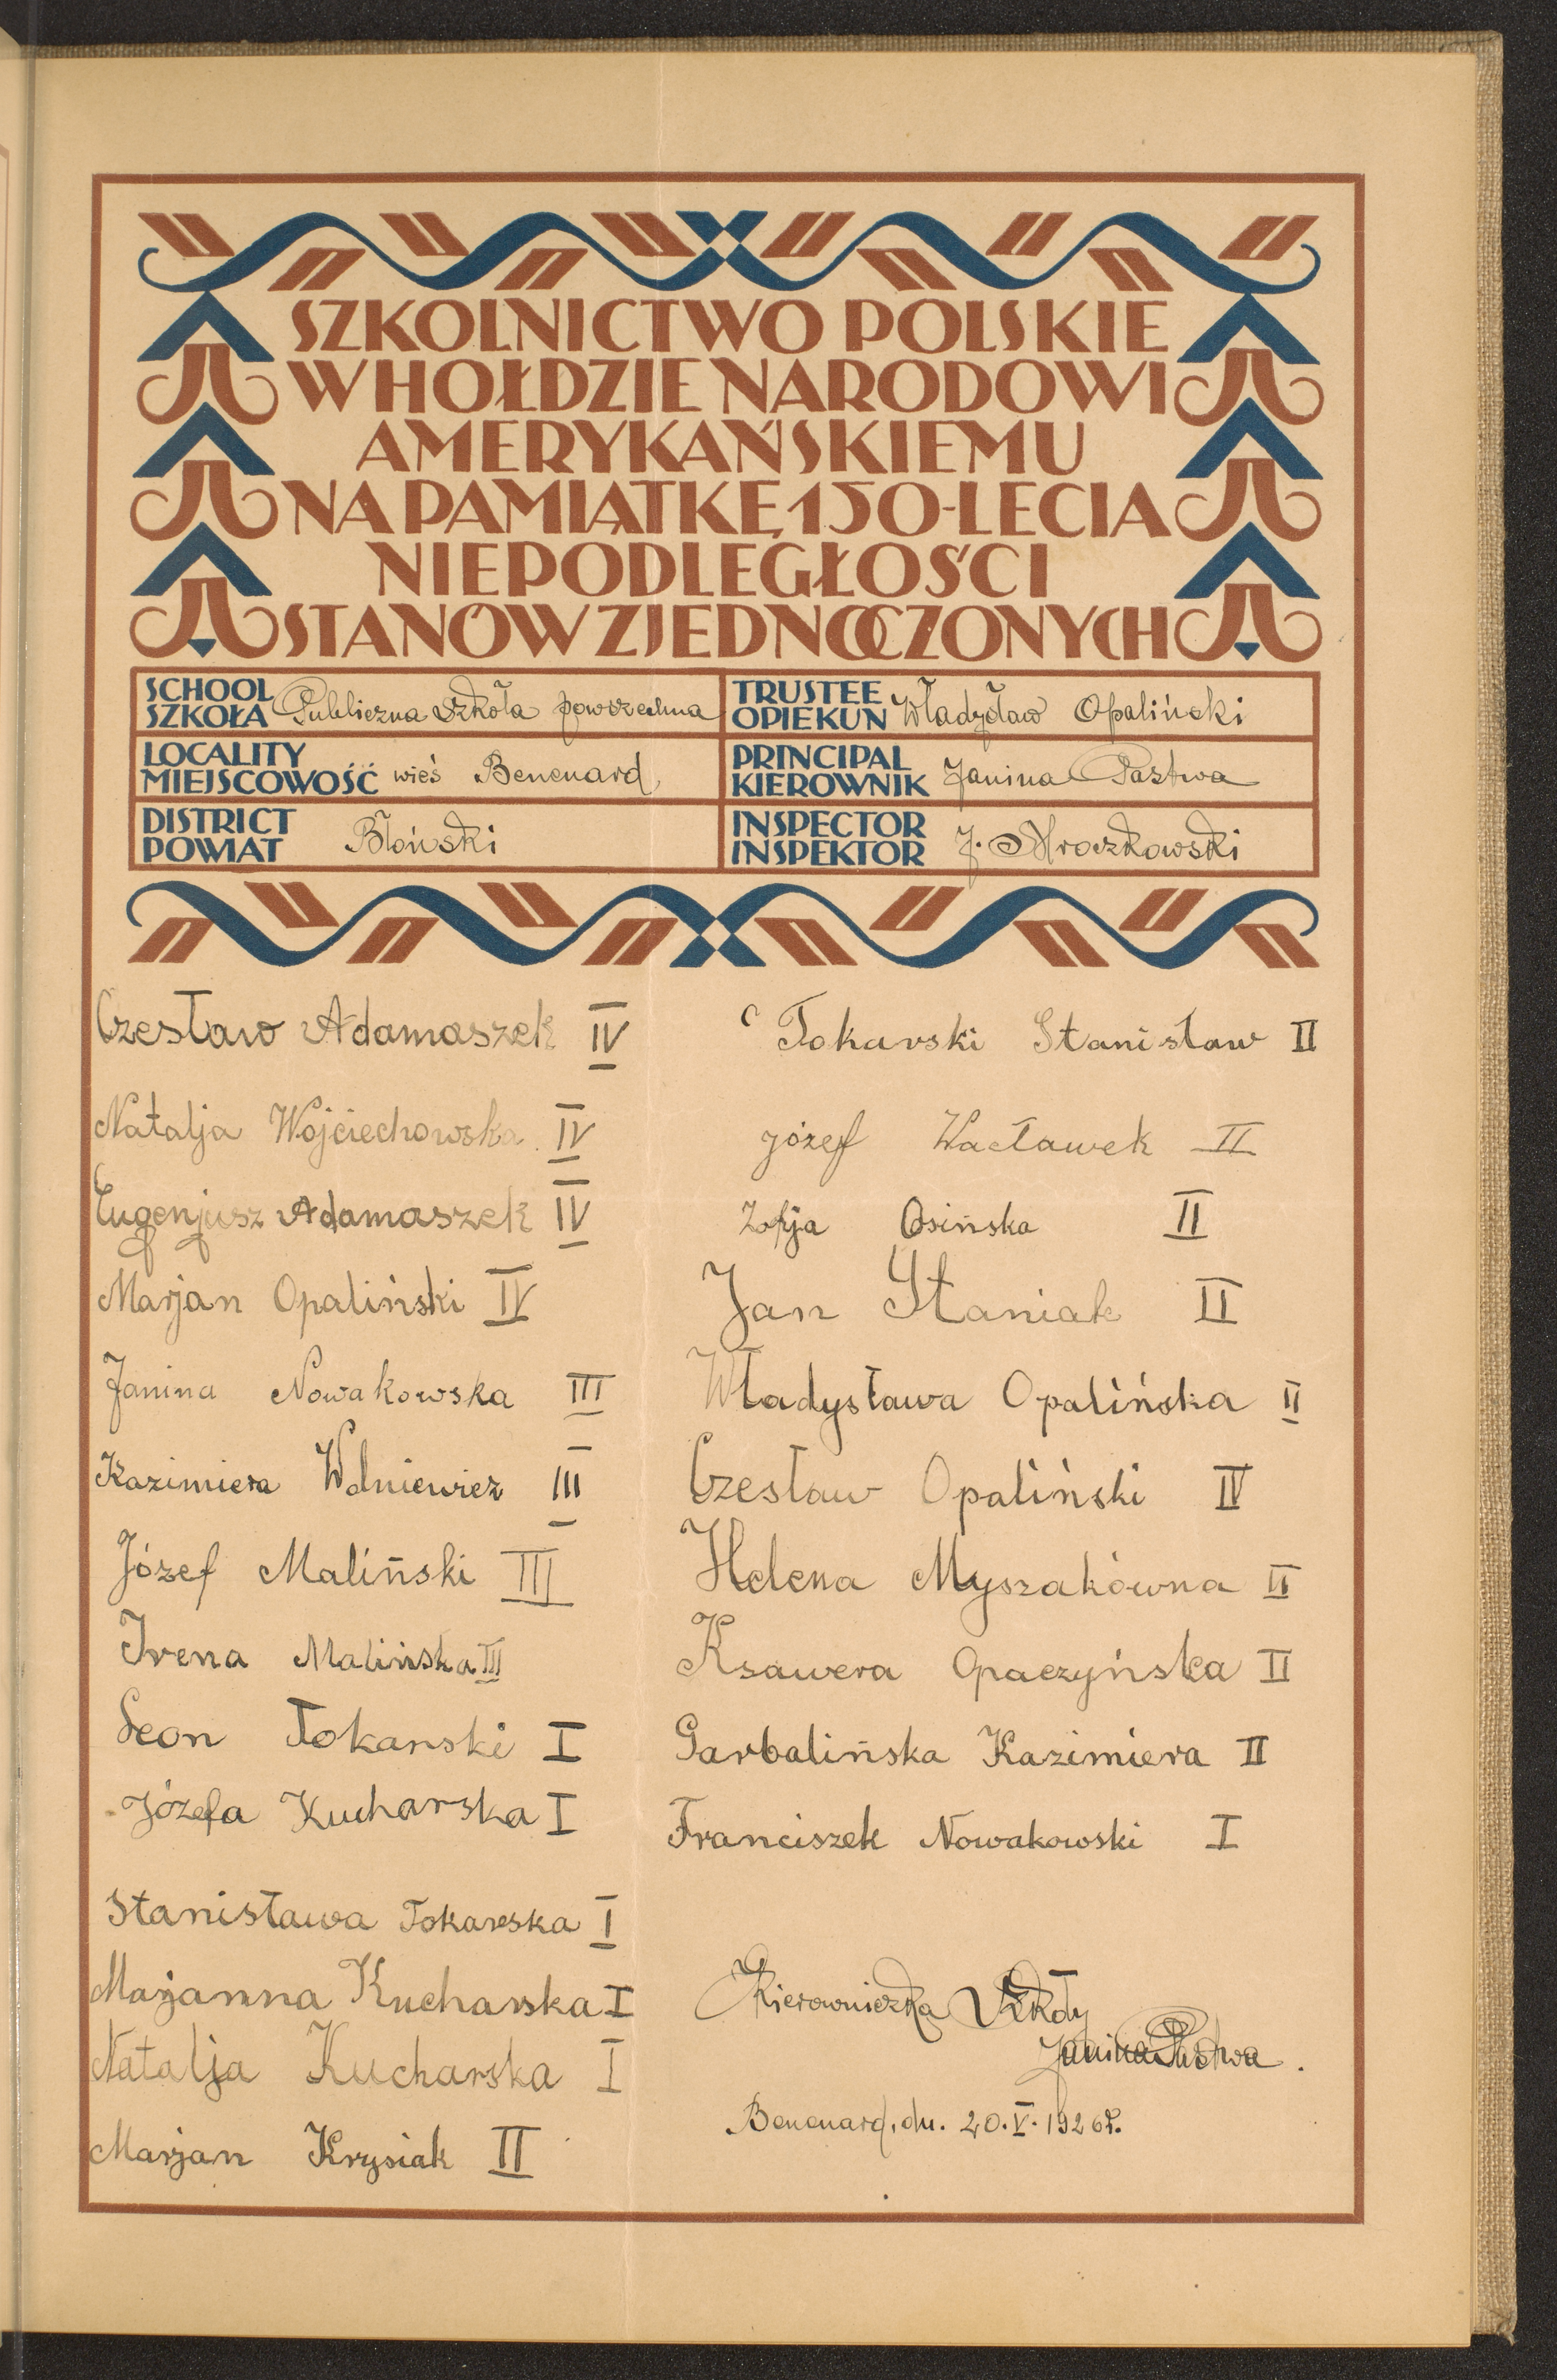 SZKOLNICTWO POLSKIE
W HOŁDZIE NARODOWI
AMERYKAŃSKIEMU
NA PAMIĄTKĘ 150-LECIA
NIEPODLEGŁOŚCI
STANÓW ZJEDNOCZONYCH
SCHOOL
SZKOŁA Publiczna Szkoła powszechna
LOCALITY
MIEJSCOWOŚĆ wieś Benenard
DISTRICT
POWIAT Błoński
TRUSTEE
OPIEKUN Władysław Opaliński
PRINCIPAL
KIEROWNIK Janina Pastwa
INSPECTOR
INSPEKTOR J. Mroczkowski
Czesław Adamaszek IV
Natalja Wojciechowska IV
Eugenjusz Adamaszek IV
Marjan Opaliński IV
Janina Nowakowska III
Kazimiera Wolniewicz III
Józef Maliński III
Irena Malińska III
Leon Tokarski I
Józefa Kucharska I
Stanisława Tokarska I
Marjanna Kucharska I
Natalja Kucharska I
Marjan Krysiak II
Tokarski Stanisław II
Józef Wacławek II
Zofja Osińska II
Jan Staniak II
Władysława Opalińska II
Czesław Opaliński IV
Helena Myszakówna II
Ksawera Opaczyńska II
Garbalińska Kazimiera II
Franciszek Nowakowski I
Kierowniczka Szkoły
Janina Pastwa.
Benenard, dn. 20.V.1926r.